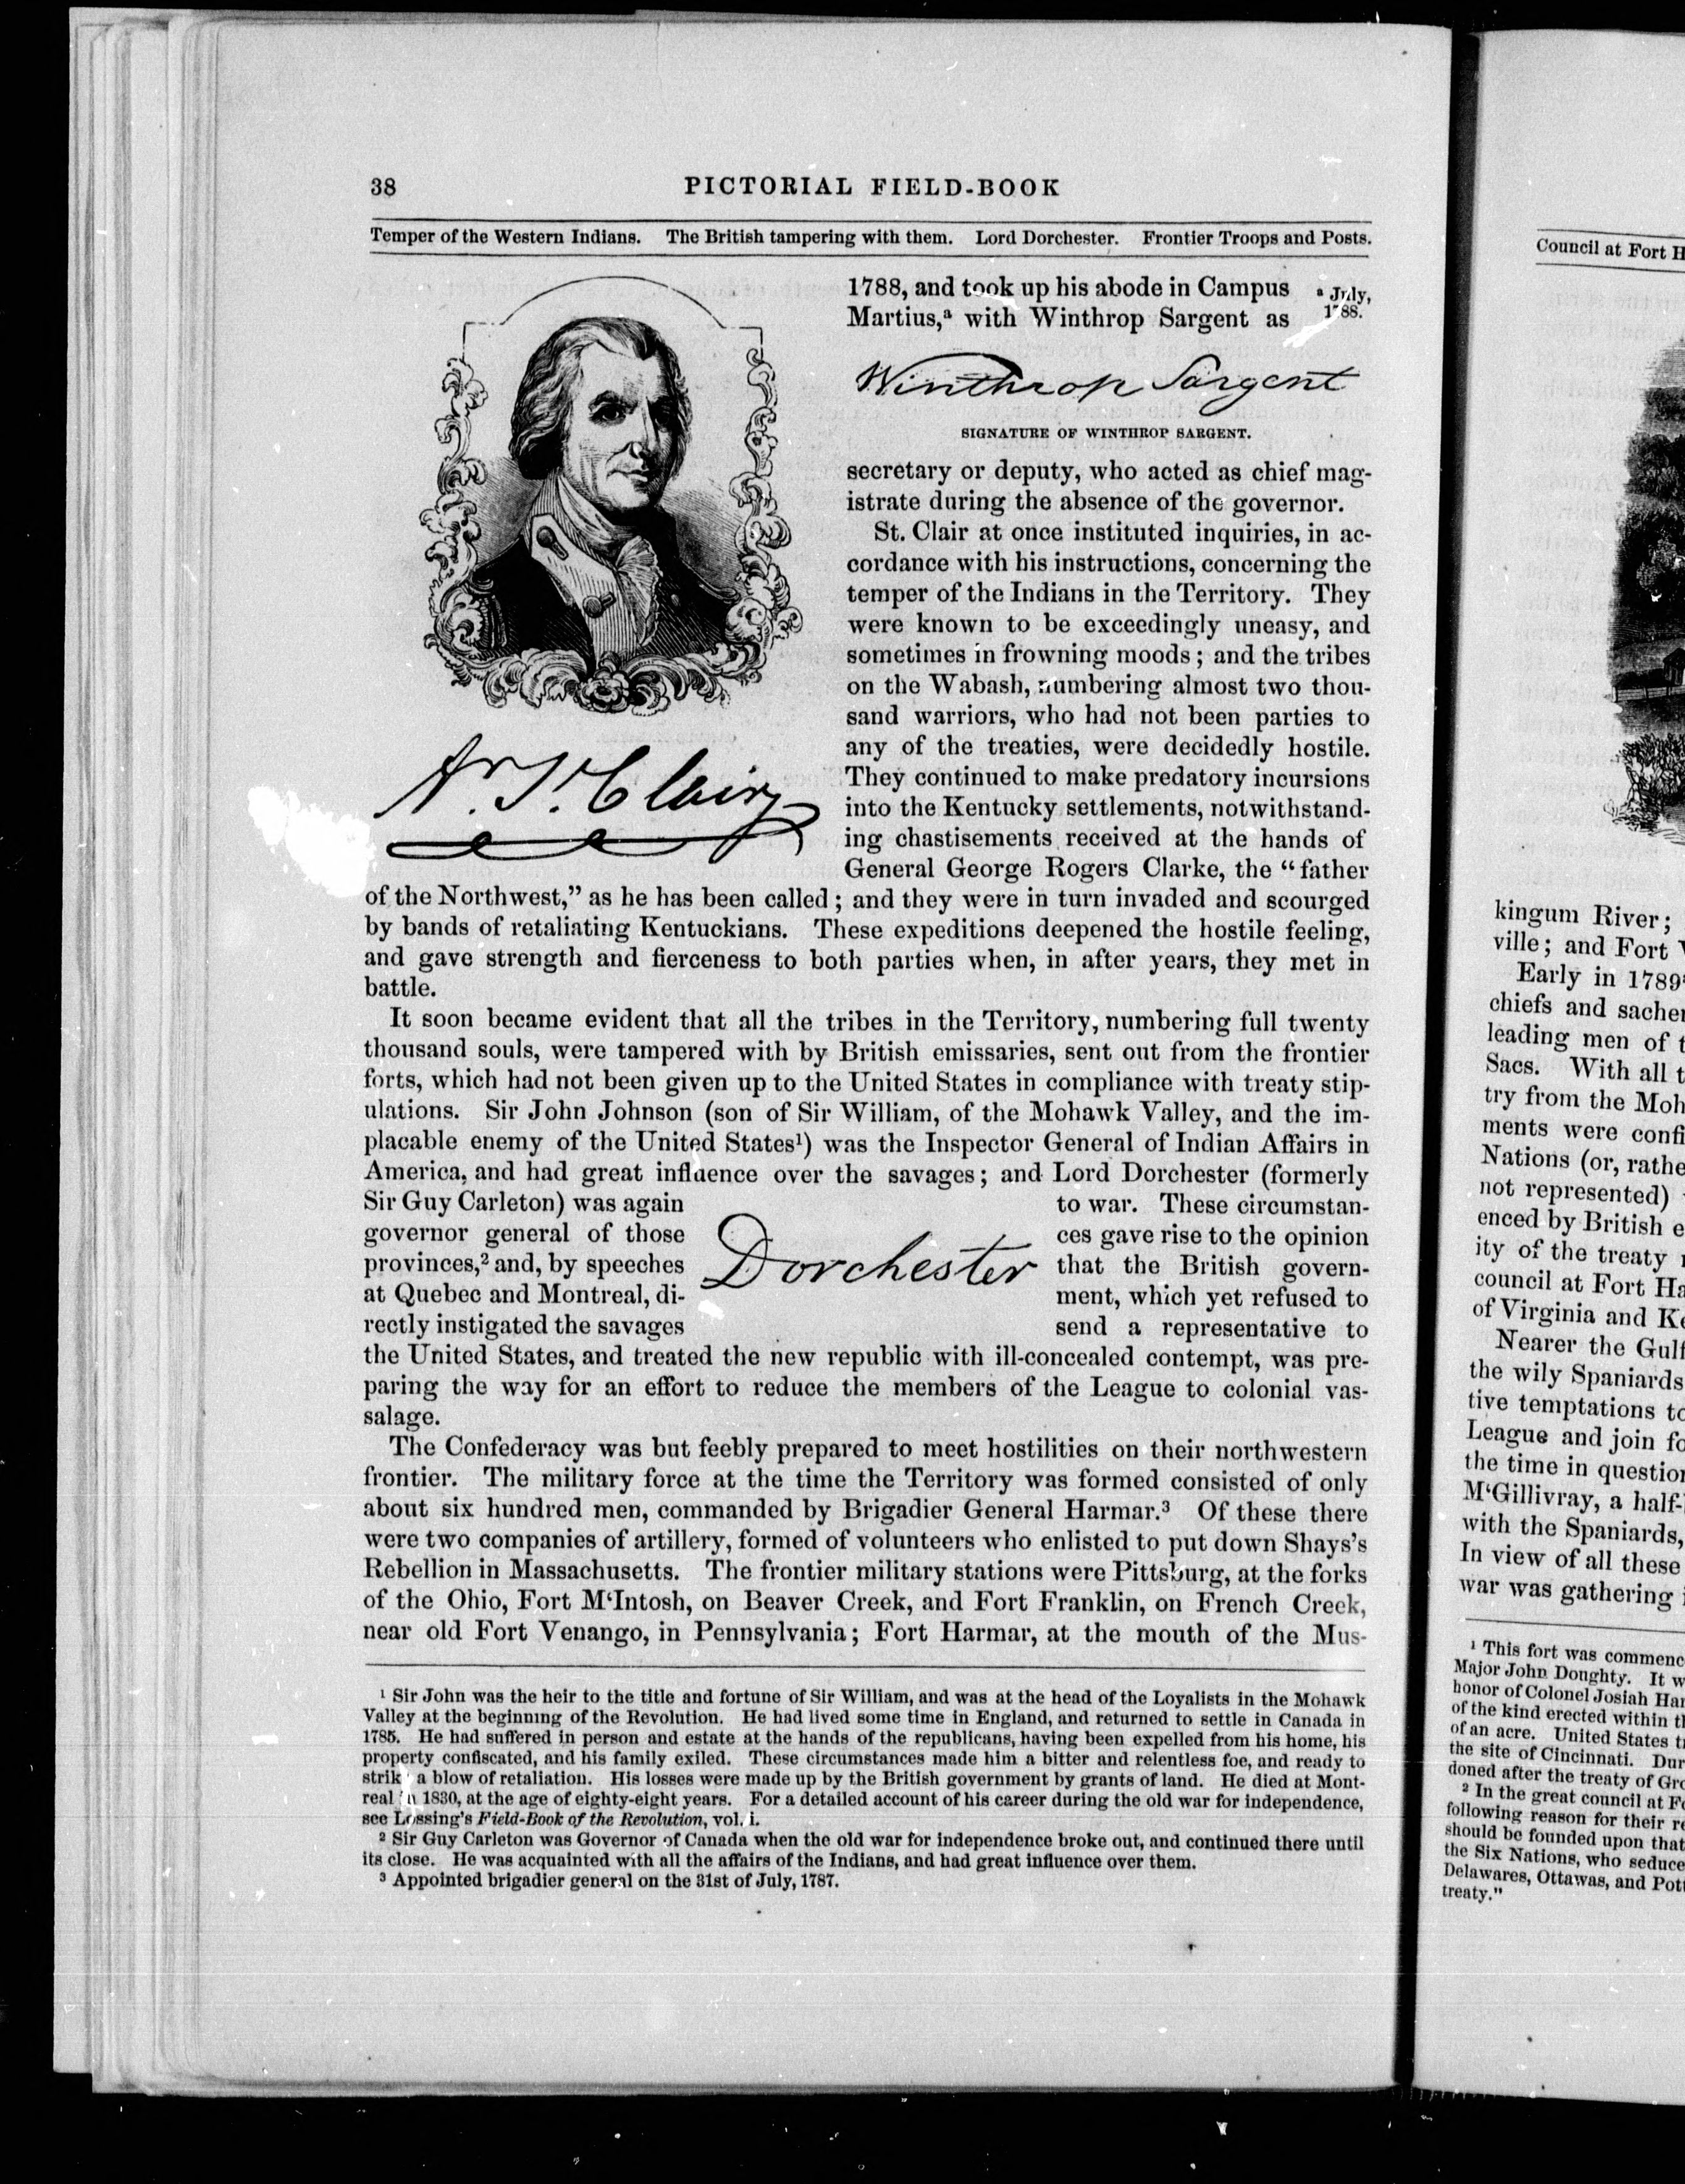 38
PICTORIAL FIELD-BOOK
Temper of the Western Indians. The British tampering with them. Lord Dorchester. Frontier Troops and Posts.
1788, and took up his abode in Campus
Martius,ᵃ with Winthrop Sargent as
ᵃ July,
1788.
Winthrop Sargent
SIGNATURE OF WINTHROP SARGENT.
secretary or deputy, who acted as chief mag-
istrate during the absence of the governor.
St. Clair at once instituted inquiries, in ac-
cordance with his instructions, concerning the
temper of the Indians in the Territory. They
were known to be exceedingly uneasy, and
sometimes in frowning moods; and the tribes
on the Wabash, numbering almost two thou-
sand warriors, who had not been parties to
any of the treaties, were decidedly hostile.
They continued to make predatory incursions
into the Kentucky settlements, notwithstand-
ing chastisements received at the hands of
General George Rogers Clarke, the "father
Ar. St. Clair
of the Northwest," as he has been called; and they were in turn invaded and scourged
by bands of retaliating Kentuckians. These expeditions deepened the hostile feeling,
and gave strength and fierceness to both parties when, in after years, they met in
battle.
It soon became evident that all the tribes in the Territory, numbering full twenty
thousand souls, were tampered with by British emissaries, sent out from the frontier
forts, which had not been given up to the United States in compliance with treaty stip-
ulations. Sir John Johnson (son of Sir William, of the Mohawk Valley, and the im-
placable enemy of the United States¹) was the Inspector General of Indian Affairs in
America, and had great influence over the savages; and Lord Dorchester (formerly
Sir Guy Carleton) was again
governor general of those
provinces,² and, by speeches
at Quebec and Montreal, di-
rectly instigated the savages
Dorchester
to war. These circumstan-
ces gave rise to the opinion
that the British govern-
ment, which yet refused to
send a representative to
the United States, and treated the new republic with ill-concealed contempt, was pre-
paring the way for an effort to reduce the members of the League to colonial vas-
salage.
The Confederacy was but feebly prepared to meet hostilities on their northwestern
frontier. The military force at the time the Territory was formed consisted of only
about six hundred men, commanded by Brigadier General Harmar.³ Of these there
were two companies of artillery, formed of volunteers who enlisted to put down Shays's
Rebellion in Massachusetts. The frontier military stations were Pittsburg, at the forks
of the Ohio, Fort M'Intosh, on Beaver Creek, and Fort Franklin, on French Creek,
near old Fort Venango, in Pennsylvania; Fort Harmar, at the mouth of the Mus-
¹ Sir John was the heir to the title and fortune of Sir William, and was at the head of the Loyalists in the Mohawk
Valley at the beginning of the Revolution. He had lived some time in England, and returned to settle in Canada in
1785. He had suffered in person and estate at the hands of the republicans, having been expelled from his home, his
property confiscated, and his family exiled. These circumstances made him a bitter and relentless foe, and ready to
strike a blow of retaliation. His losses were made up by the British government by grants of land. He died at Mont-
real in 1830, at the age of eighty-eight years. For a detailed account of his career during the old war for independence,
see Lossing's Field-Book of the Revolution, vol. i.
² Sir Guy Carleton was Governor of Canada when the old war for independence broke out, and continued there until
its close. He was acquainted with all the affairs of the Indians, and had great influence over them.
³ Appointed brigadier general on the 31st of July, 1787.
Council at Fort H
kingum River;
ville; and Fort
Early in 1789
chiefs and sache
leading men of t
Sacs. With all t
try from the Moh
ments were confi
Nations (or, rathe
not represented)
enced by British e
ity of the treaty
council at Fort Ha
of Virginia and Ke
Nearer the Gulf
the wily Spaniards
tive temptations to
League and join fo
the time in question
M'Gillivray, a half-
with the Spaniards,
In view of all these
war was gathering
¹ This fort was commenc
Major John Doughty. It w
honor of Colonel Josiah Har
of the kind erected within t
of an acre. United States t
the site of Cincinnati. Dur
doned after the treaty of Gre
² In the great council at Fo
following reason for their re
should be founded upon that
the Six Nations, who seduce
Delawares, Ottawas, and Pott
treaty."